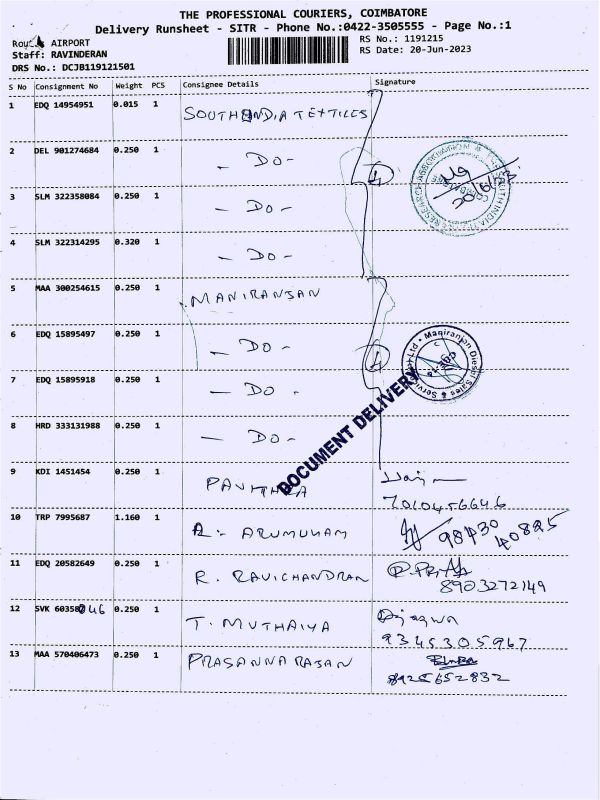 THE PROFESSIONAL COURIERS, COIMBATORE
Delivery Runsheet - SITR - Phone No.:0422-3505555 - Page No.:1
AIRPORT
Staff: RAVINDERAN
DRS No.: DCJB119121501
RS No.: 1191215
RS Date: 20-Jun-2023
S No Consignment No Weight PCS Consignee Details Signature
1 EDQ 14954951 0.015 1 SOUTH INDIA TEXTILES
2 DEL 901274684 0.250 1 - DO - 4
3 SLM 322358084 0.250 1 - DO -
4 SLM 322314295 0.320 1 - DO -
5 MAA 300254615 0.250 1 MANIRANJAN
6 EDQ 15895497 0.250 1 - DO - 4
7 EDQ 15895918 0.250 1 - DO -
8 HRD 333131988 0.250 1 - DO -
DOCUMENT DELIVERY
9 KDI 1451454 0.250 1 PAVITHRA
7010456646
10 TRP 7995687 1.160 1 ARUMUHAM
98430 40825
11 EDQ 20582649 0.250 1 R. RAVICHANDRAN
8903272149
12 SVK 60358046 0.250 1 T. MUTHAIYA
9345305967
13 MAA 570406473 0.250 1 PRASANNA RAJAN
8925652832